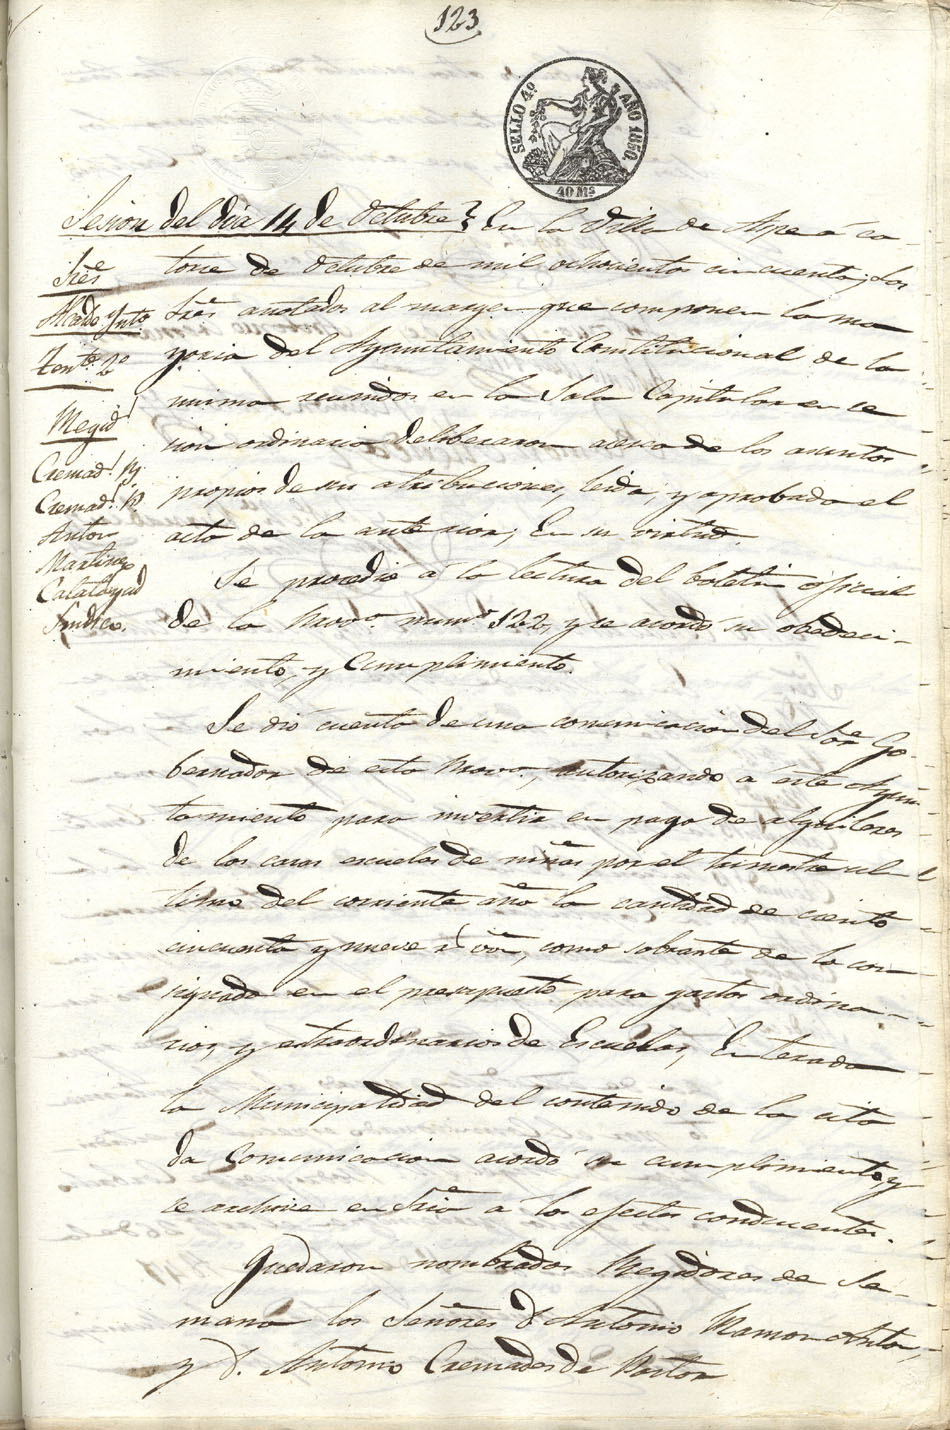 123
SELLO 4º AÑO 1850.
40 Ms
Sesion del dia 14 de Octubre } En la Villa de Aspe á ca-
torce de Octubre de mil ochociento cincuenta, los
Sres anotados al margen que componen la ma
yoria del Ayuntamiento Constitucional de la
misma reunidos en la Sala Capitular en se
sion ordinaria deliberaron acerca de los asuntos
propios de sus atribuciones, leida, y aprobada el
acta de la anterior, En su virtud.
Sres
Alcade Ynto
Tente 2º
Regid.s
Cremad.s
Cremad.s
Anton
Martinez
Calatayud
Sindico.
Se procedio á la lectura del boletin oficial
de la Prova. numo 122, y se acordó su obedeci-
miento, y Cumplimiento.
Se dió cuenta de una comunicacion del Sor Go-
bernador de esta Prova., autorizando á este Ayun
tamiento para invertir en pago de alquileres
de las casas escuelas de niñas por el trimestre ul
timo del corriente año la cantidad de ciento
cincuenta y nueve rs von, como sobrante de la con
signada en el presupuesto para gastos ordina-
rios, y extraordinarios de Escuelas, Enterada
la Municipalidad del contenido de la cita
da Comunicacion acordó su cumplimiento, y
se archive en Sria á los efectos conducentes.
Quedaron nombrados Regidores de Se-
mana los Señores D. Antonio Ramon Anton,
y D. Antonio Cremades de Pastor